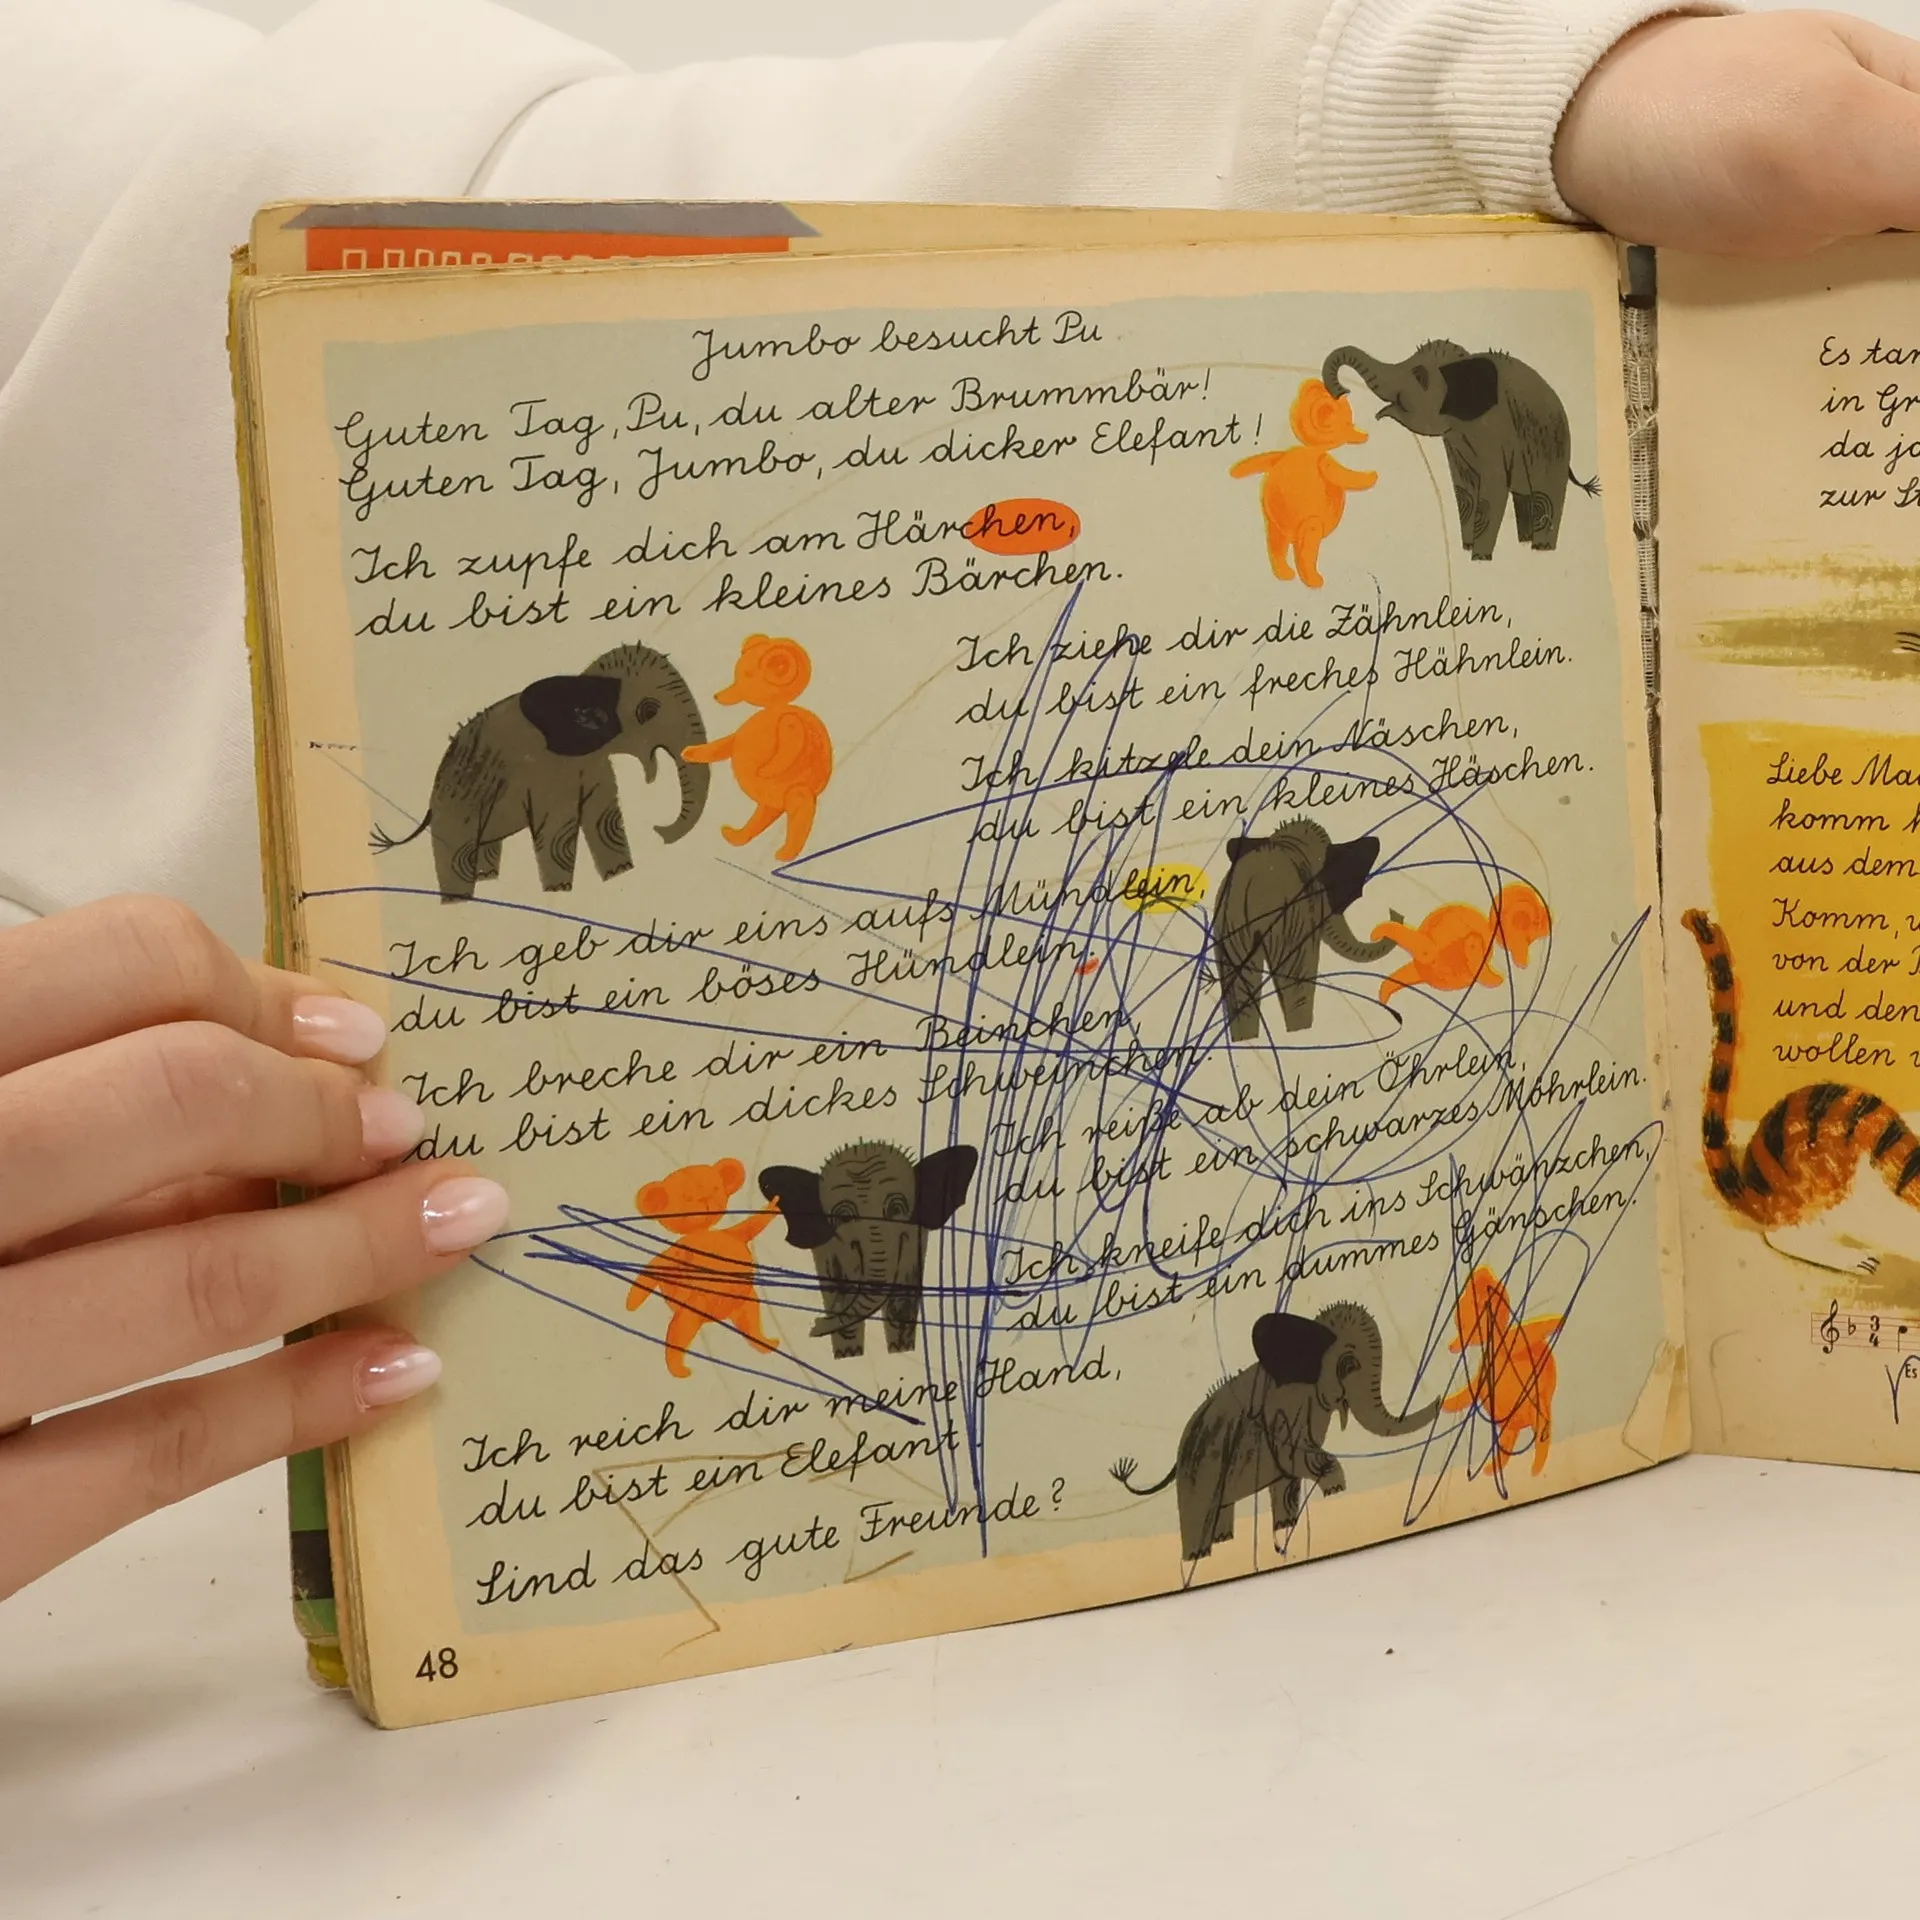 Jumbo besucht Pu
Guten Tag, Pu, du alter Brummbär!
Guten Tag, Jumbo, du dicker Elefant!
Ich zupfe dich am Härchen,
du bist ein kleines Bärchen.
Ich ziehe dir die Zähnlein,
du bist ein freches Hähnlein.
Ich kitzele dein Näschen,
du bist ein kleines Häschen.
Ich geb dir eins aufs Mündlein,
du bist ein böses Hündlein.
Ich breche dir ein Beinchen,
du bist ein dickes Schweinchen.
Ich reiße ab dein Öhrlein,
du bist ein schwarzes Möhrlein.
Ich kneife dich ins Schwänzchen,
du bist ein dummes Gänschen.
Ich reich dir meine Hand,
du bist ein Elefant.
Sind das gute Freunde?
48
Es
in
da
zur
Liebe
komm
aus dem
Komm,
von der
und den
wollen
Es